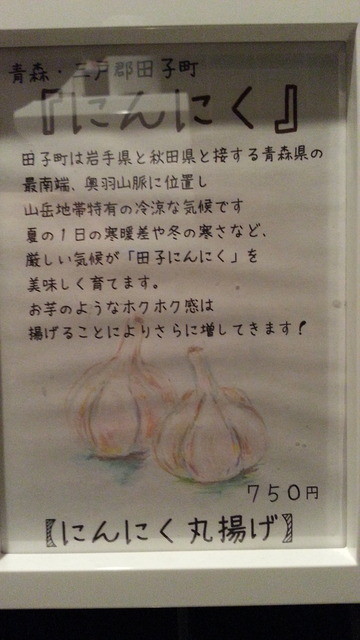 青森・三戸郡田子町
『にんにく』
田子町は岩手県と秋田県と接する青森県の
最南端、奥羽山脈に位置し
山岳地帯特有の冷涼な気候です
夏の1日の寒暖差や冬の寒さなど、
厳しい気候が「田子にんにく」を
美味しく育てます。
お芋のようなホクホク感は
揚げることによりさらに増してきます！
750円
【にんにく丸揚げ】